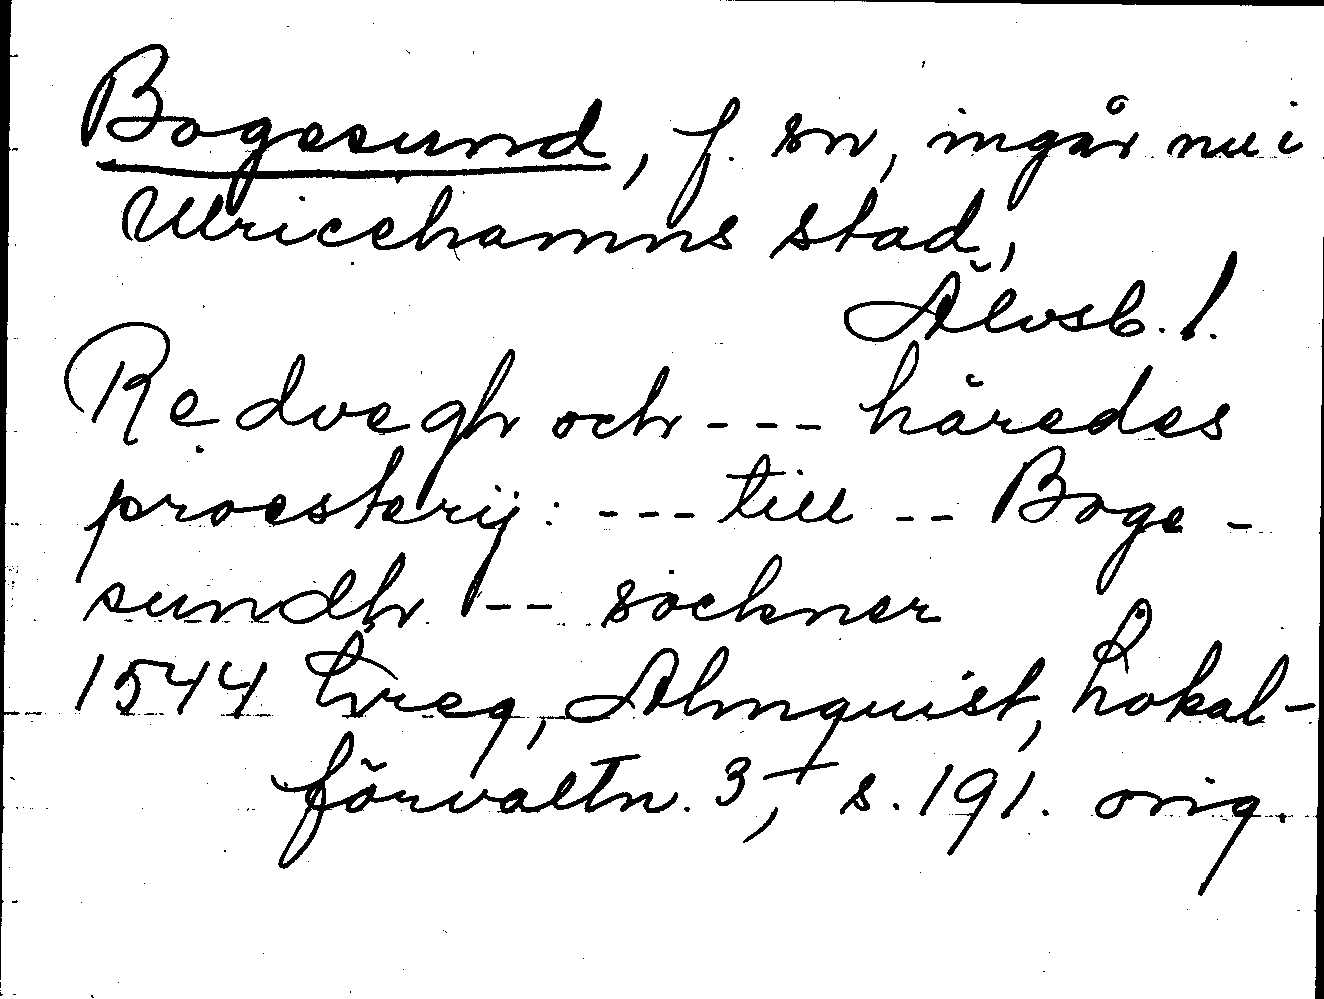 Bogesund, f. sn, ingår nu i
Ulricehamns stad,
Älvsb. l.
Redvegh och --- häredes
proesterij: --- till -- Boge-
sundh -- sockner
1544 Lreg, Almquist, Lokal-
förvaltn. 3, s. 191. orig.